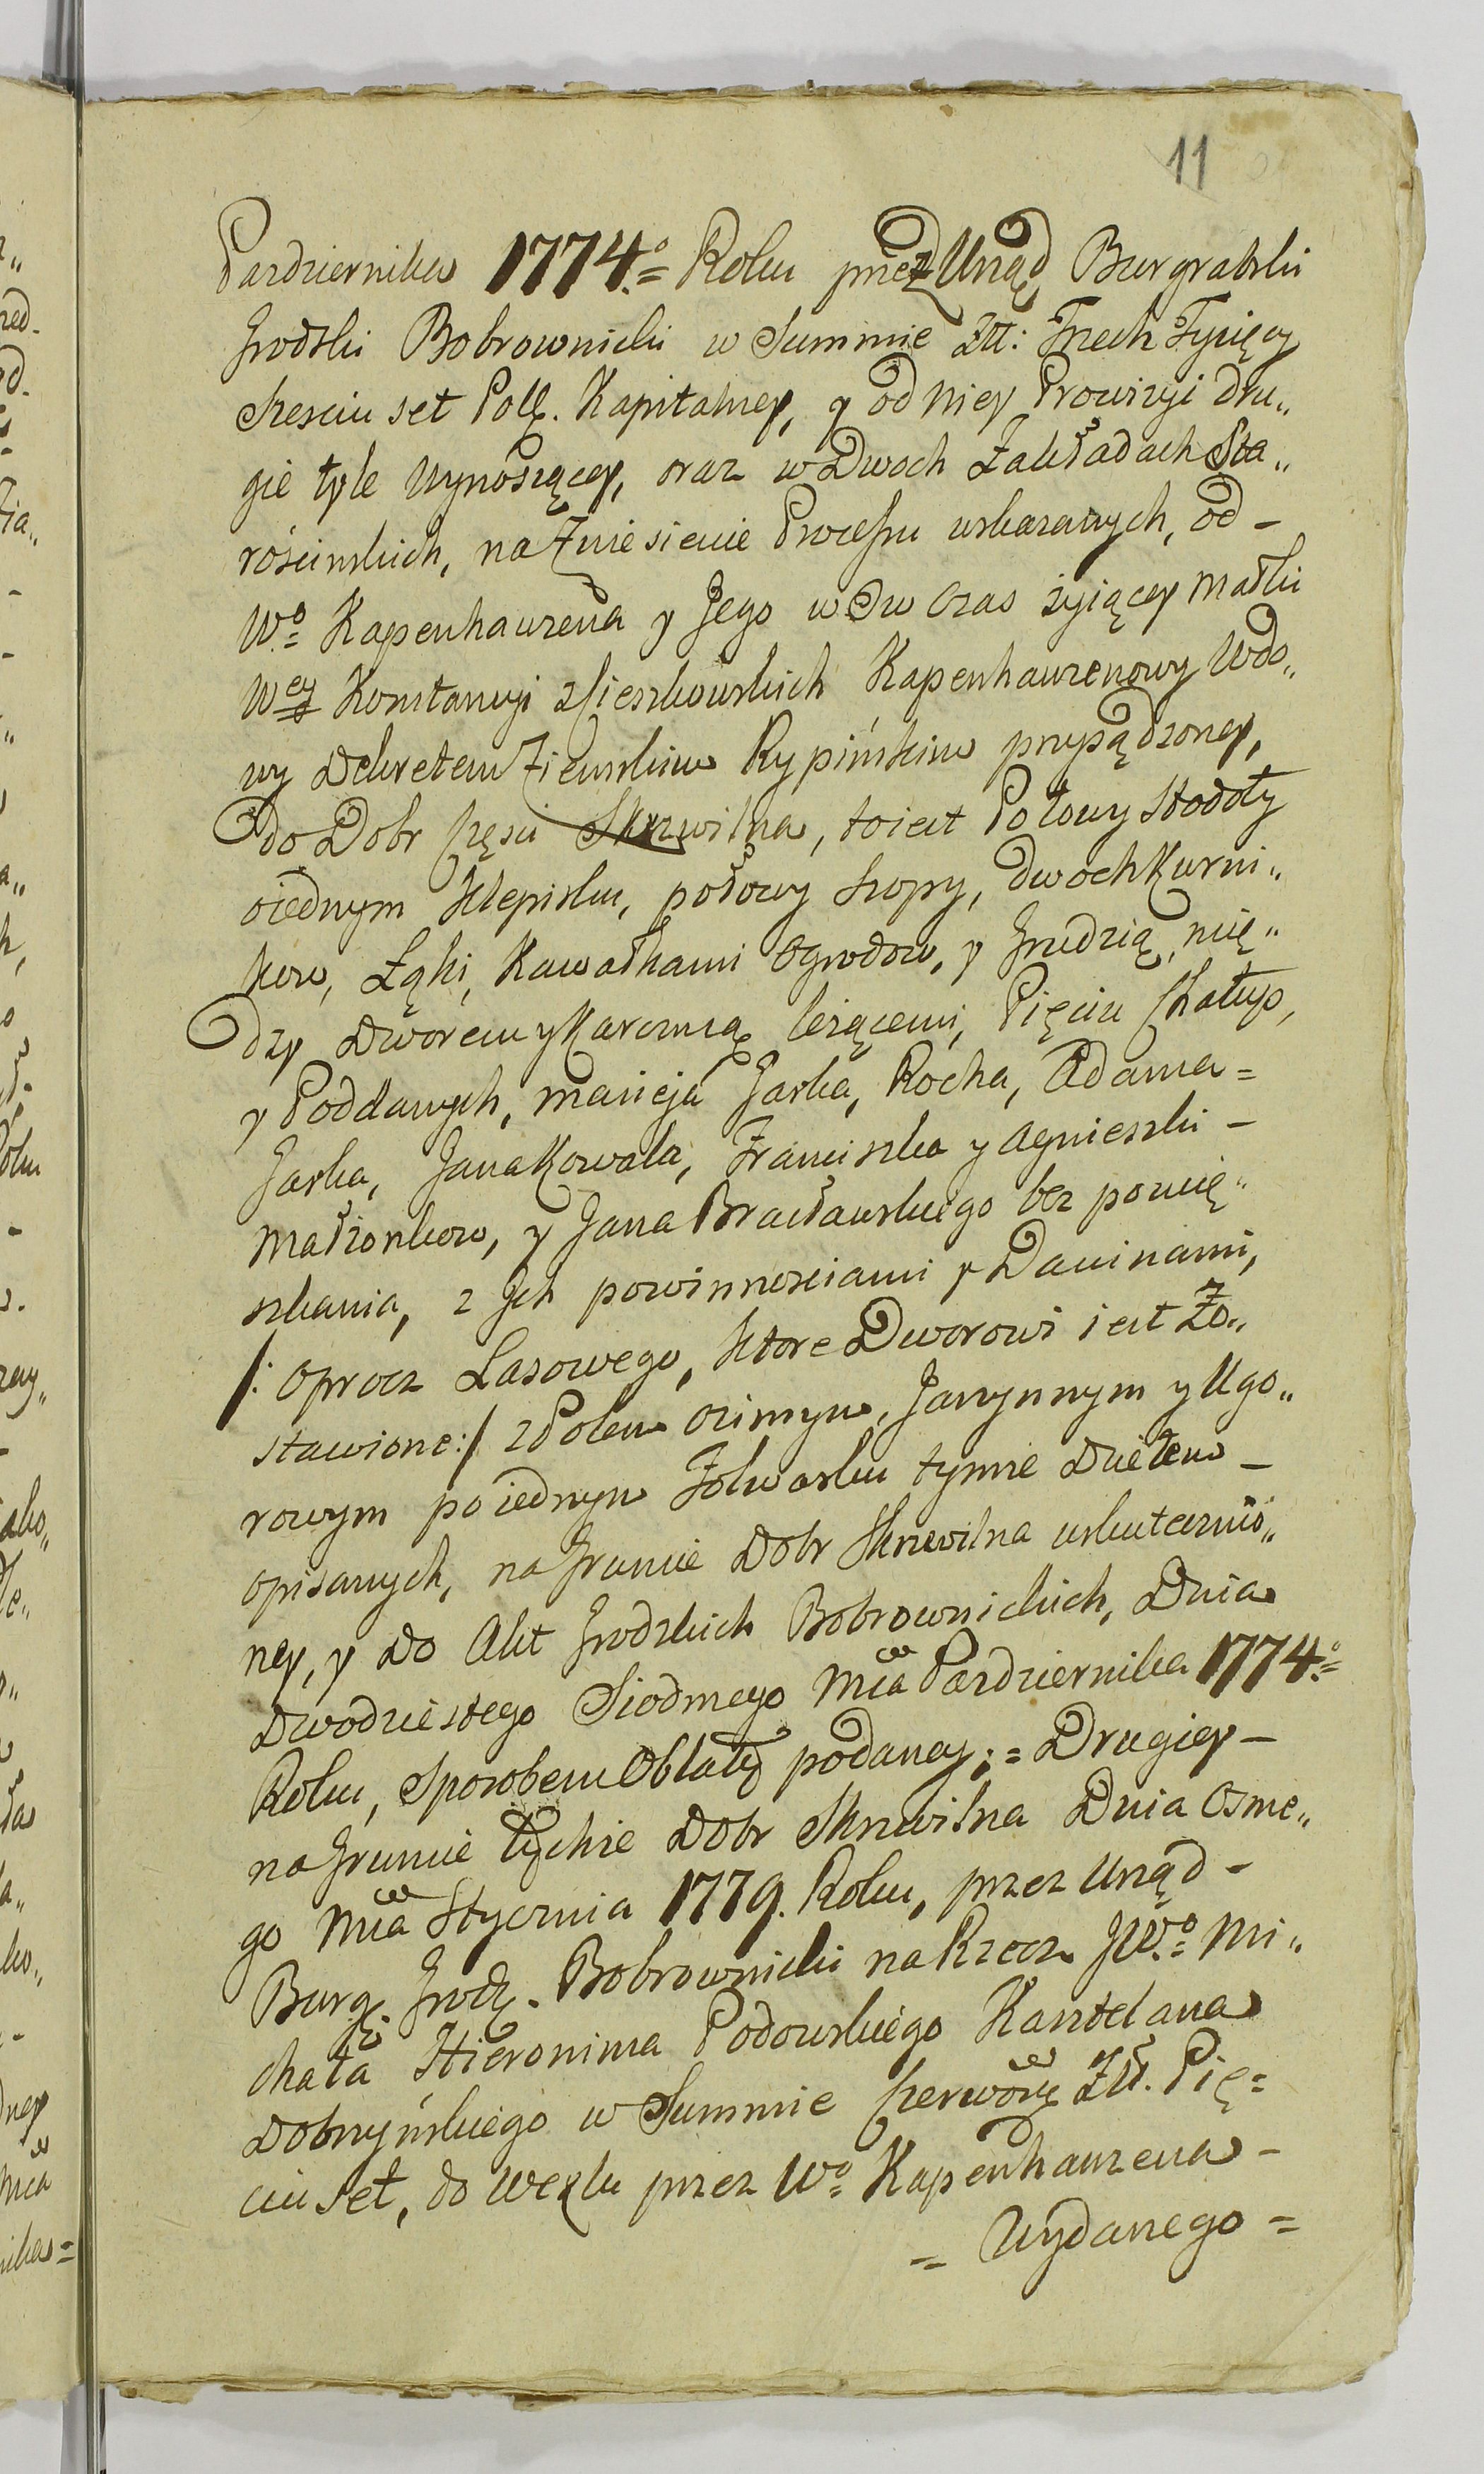 11
Pazdziernika 1774º= Roku przez Urząd Burgrabski
Grodzki Bobrownicki w Summie Złł: Trzech Tysięcy
Szesciu set Poll. Kapitalney, y od niey Prowizyi dru„
gie tyle wynoszącey, oraz w Dwoch Zakładach Sta„
roscinskich, na Zniesienie Processu wskazanych, od –
Wº= Kapenhauzena y Jego w Ow czas żyiącey Matki
Wey Konstancyi z Cieszkowskich Kapenhauzenowy Wdo„
wy Dekretem Ziemskim Rypińskim przysądzoney,
do Dobr Częsci Skrzwilna, to iest Połowy Stodoły
o iednym Klepisku, połowy Szopy, dwoch Kurni„
kow, Łąki, Kawałkami Ogrodow, y Grudzią, mię„
dzy Dworem y Karczmą leżącemi, Pięciu Chałup,
y Poddanych, Macieja Jaska, Rocha, Adama =
Jaska, Jana Kowala, Franciszka y Agnieszki –
Małżonkow, y Jana Bracławskiego bez pomię„
szkania, z Jch powinnosciami y Daninami,
/: oprocz Lasowego, ktore Dworowi iest Zo„
stawione :/ z Polem Ozimym, Jarzynnym y Ugo„
rowym po iednym Folwarku tymże Dziełem –
opisanych, na Gruncie Dobr Skrzwilna uskutecznio„
ney, y do Akt Grodzkich Bobrownickich, Dnia
Dwodziestego Siodmego Mca Pazdziernika 1774º=
Roku, Sposobem Oblaty podaney; = Drugiey –
na Gruncie tychże Dobr Skrzwilna Dnia Osme„
go Mca Stycznia 1779. Roku, przez Urząd –
Burg. Grodz. Bobrownicki na Rzecz JWº= Mi„
chała Hieronima Podowskiego Kasztelana
Dobrzyńskiego w Summie Czerwonę Złł. Pię=
ciu Set, do Wexlu przez Wº= Kapenhauzena –
= Wydanego =